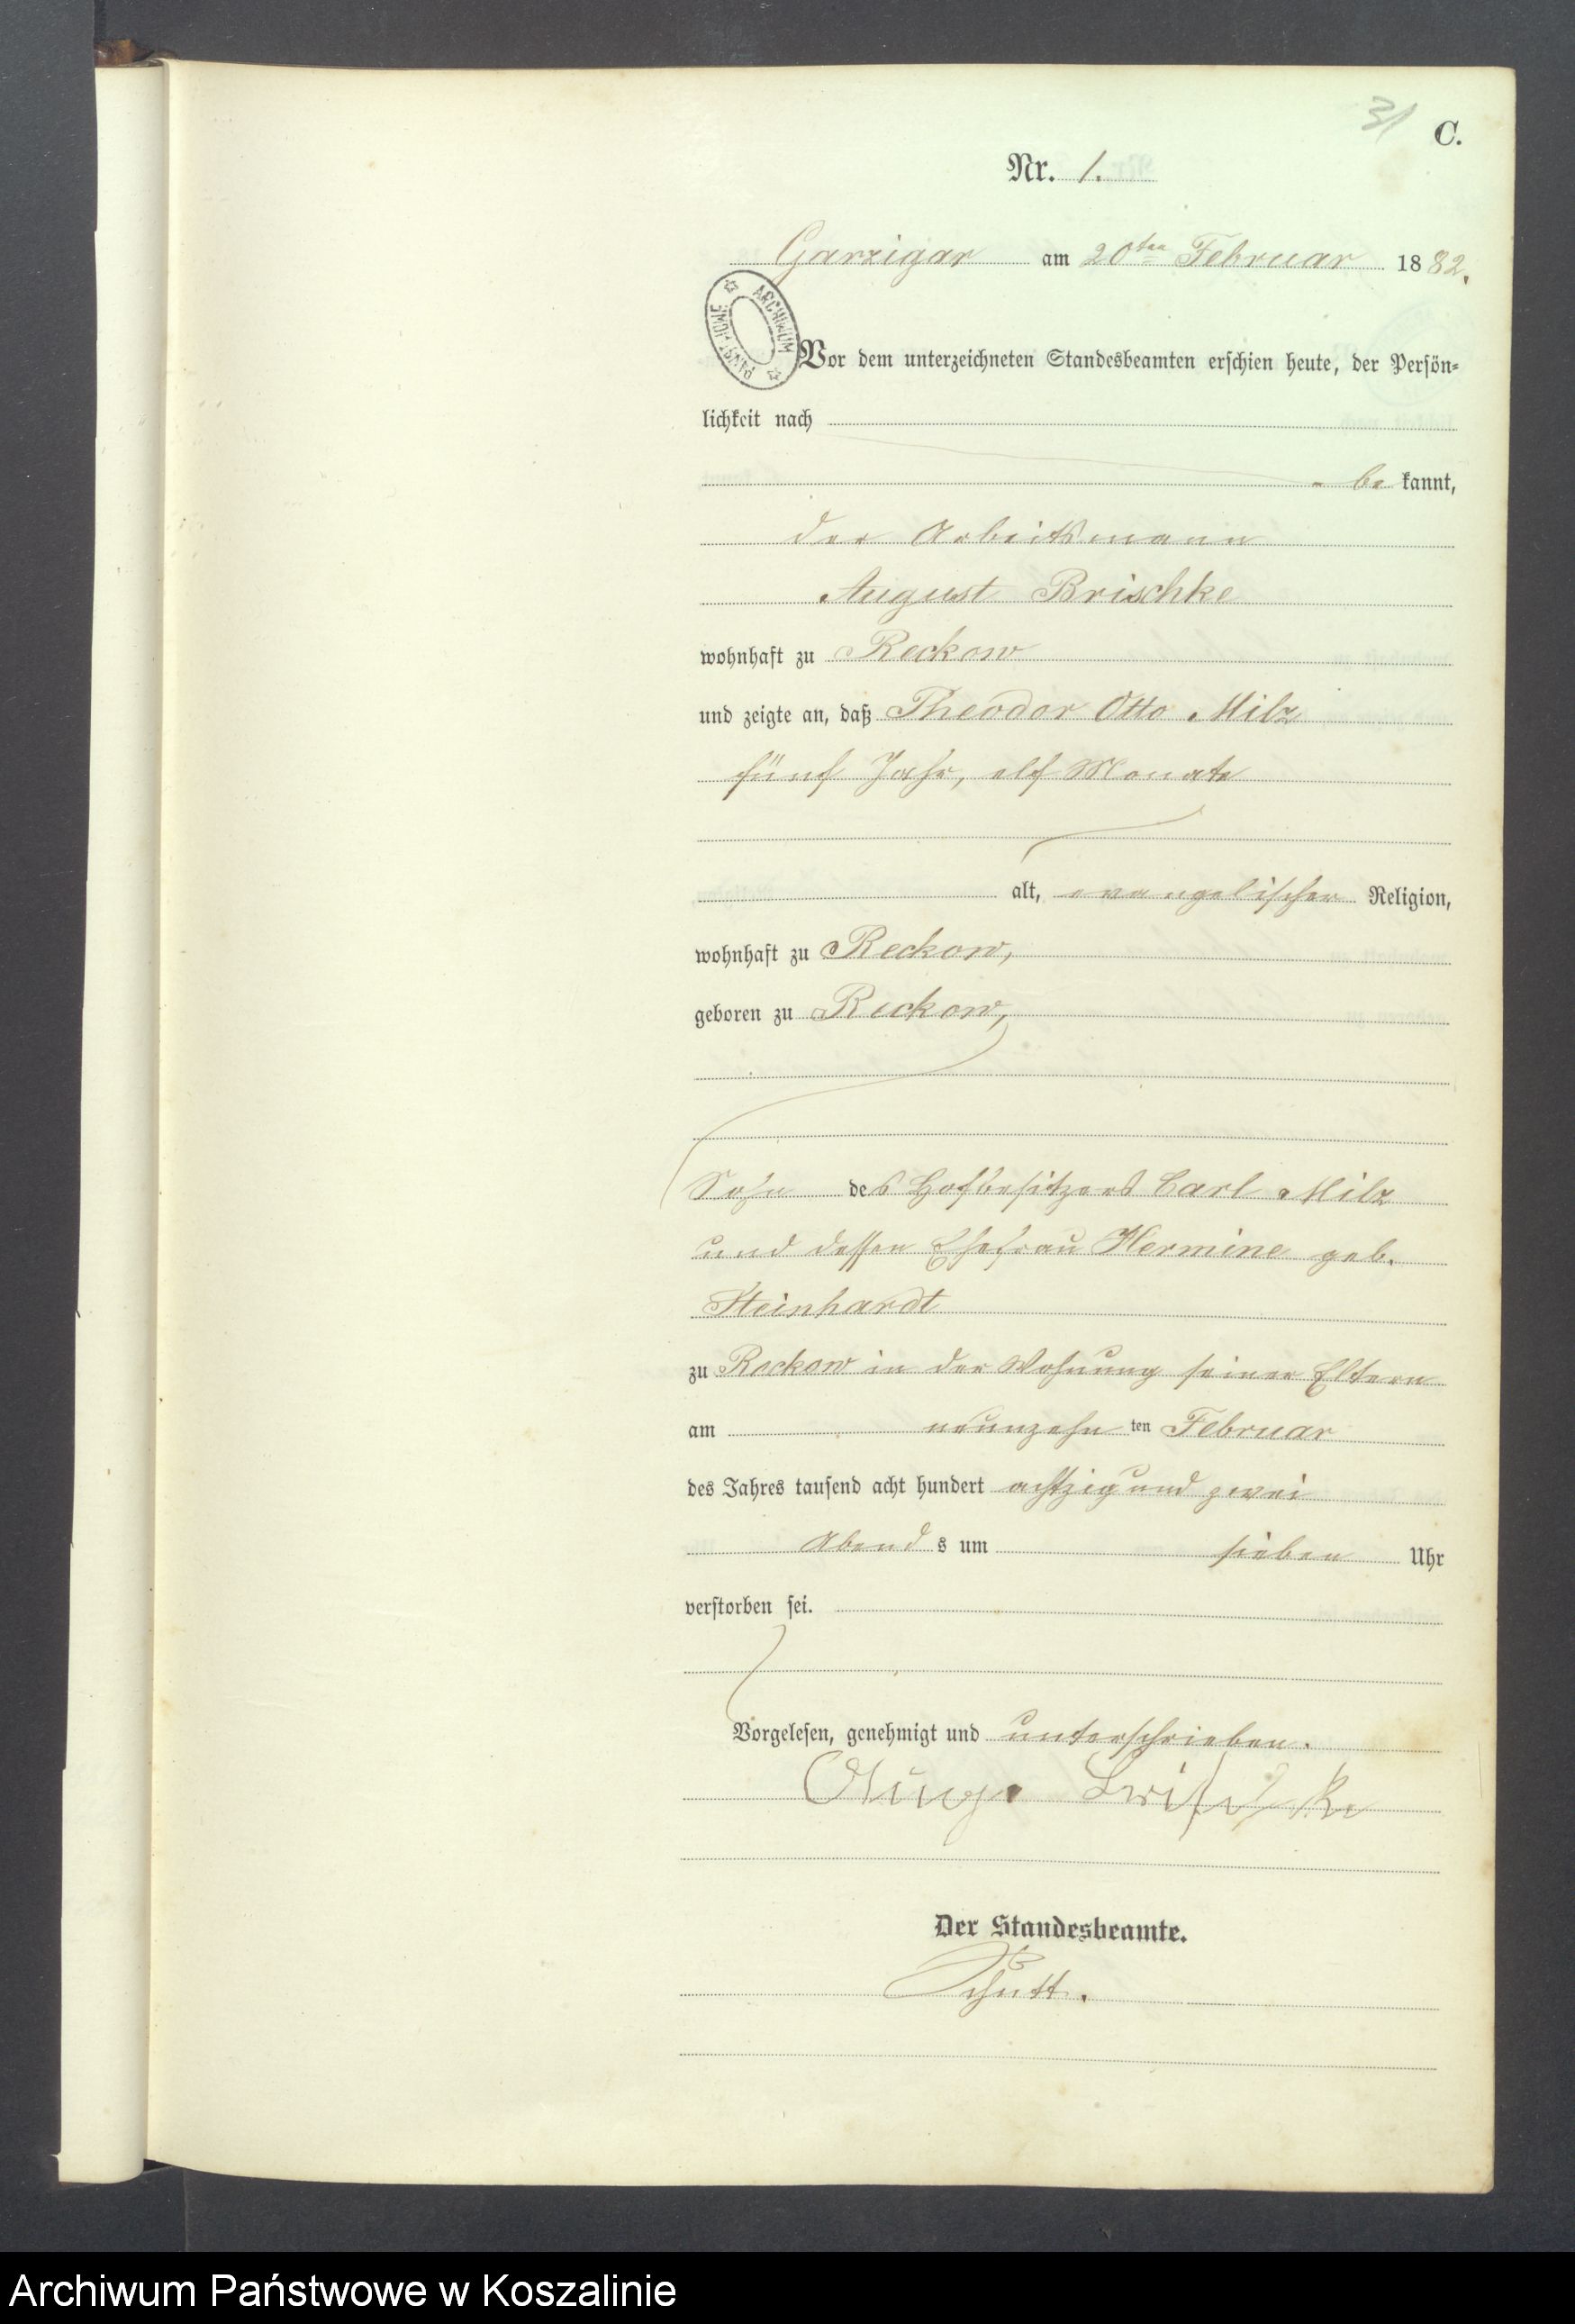 31
C.
Nr. 1.
Garzigar am 20ten Februar 1882.
ARCHIWUM PAŃSTWOWE
Vor dem unterzeichneten Standesbeamten erschien heute, der Persön-
lichkeit nach
be kannt,
der Arbeitsmann
August Brischke
wohnhaft zu Reckow
und zeigte an, daß Theodor Otto Milz
fünf Jahr, elf Monate
alt, evangelischer Religion,
wohnhaft zu Reckow,
geboren zu Reckow,
Sohn des Hofbesitzers Carl Milz
und dessen Ehefrau Hermine geb.
Steinhardt
zu Reckow in der Wohnung seiner Eltern
am neunzehn ten Februar
des Jahres tausend acht hundert achtzig und zwei
Abend s um sieben Uhr
verstorben sei.
Vorgelesen, genehmigt und unterschrieben.
Der Standesbeamte.
Schütt.
Archiwum Państwowe w Koszalinie